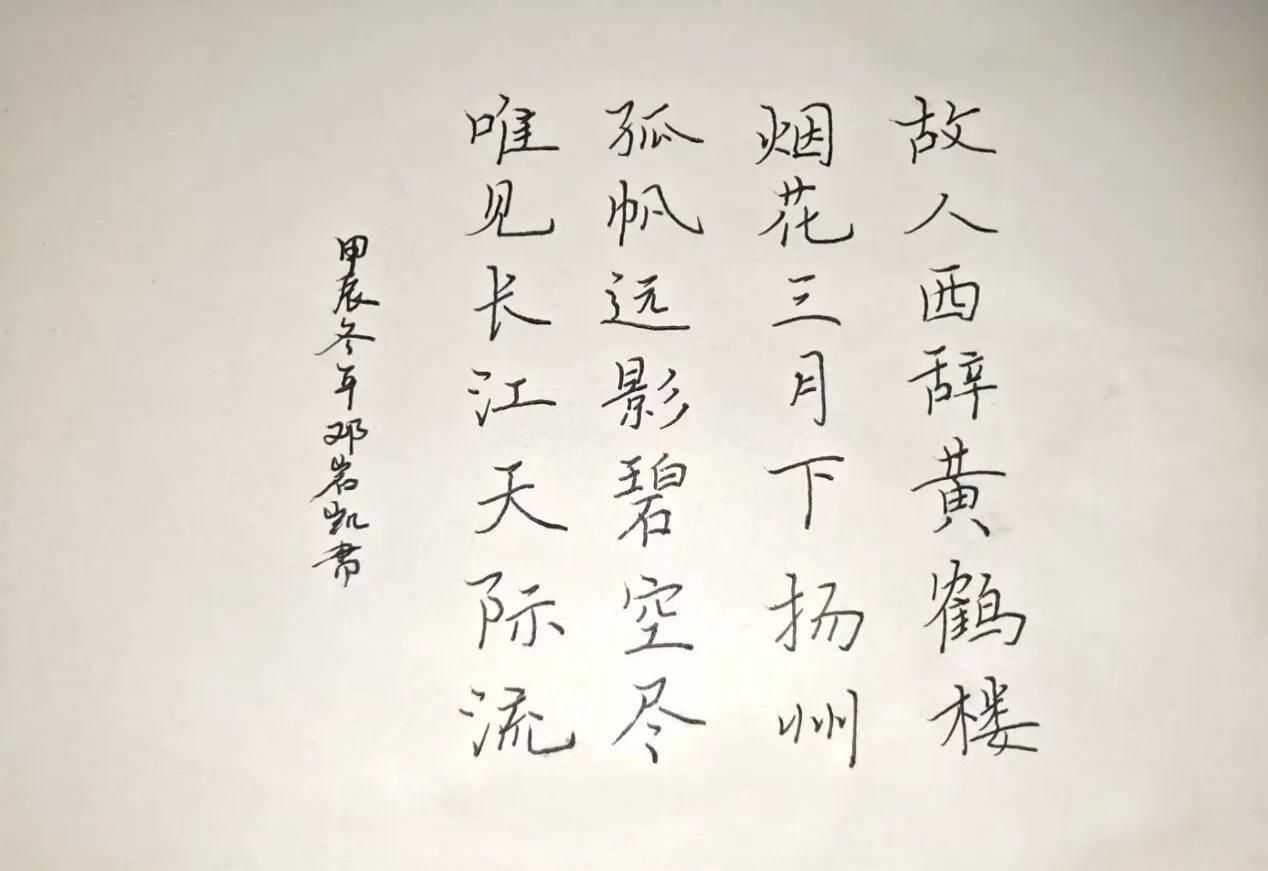 故人西辞黄鹤楼
烟花三月下扬州
孤帆远影碧空尽
唯见长江天际流
甲辰冬年邓岩凯书